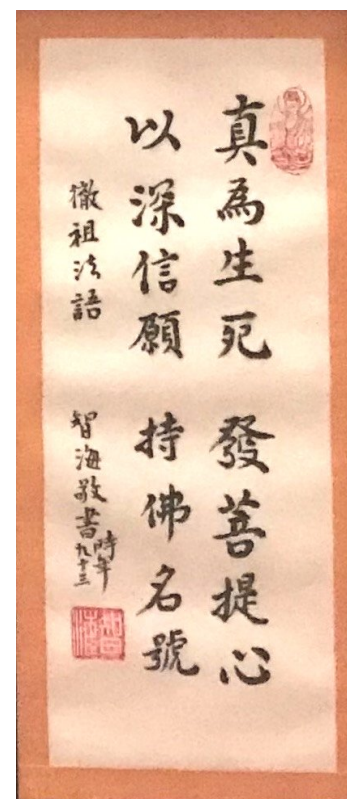 真為生死 發菩提心
以深信願 持佛名號
徹祖法語 智海敬書
時年九十三
智海